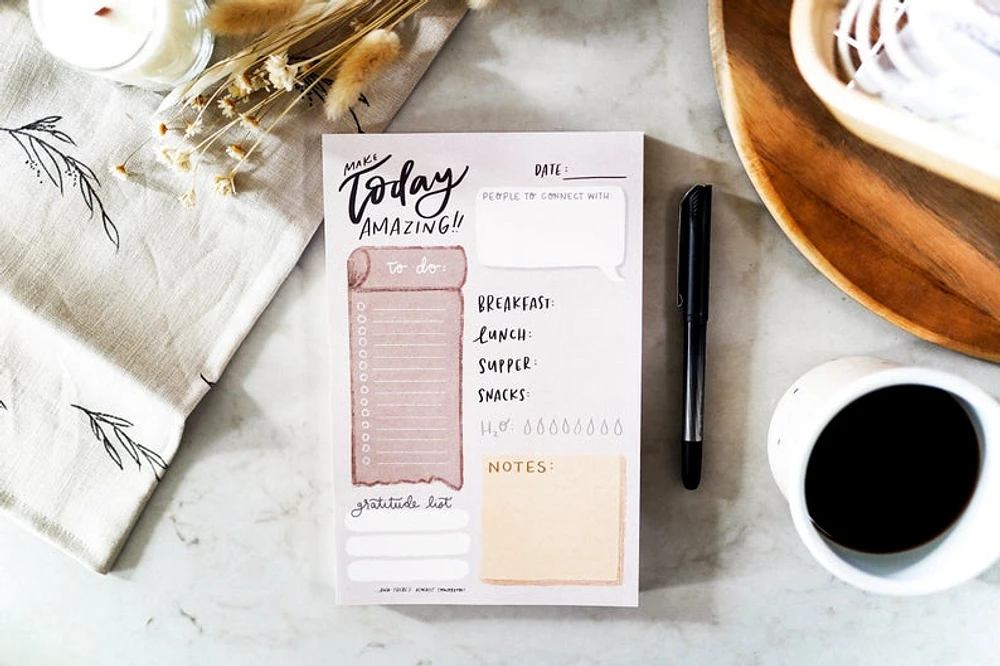 MAKE
Today
AMAZING!!
DATE:
PEOPLE TO CONNECT WITH:
to do:
BREAKFAST:
LUNCH:
SUPPER:
SNACKS:
H₂O:
NOTES:
gratitude list